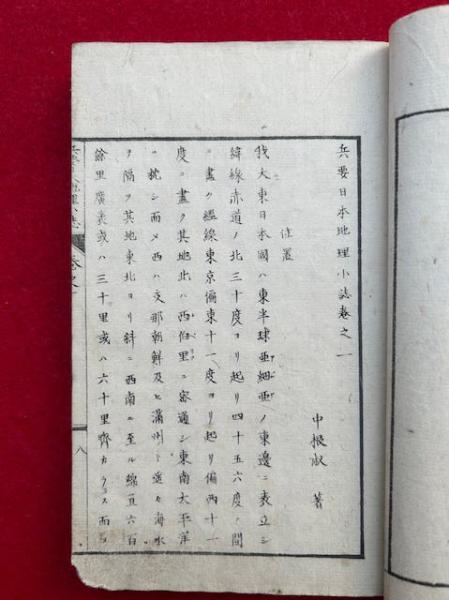 兵要日本地理小誌巻之一
中根淑 著
位置
我大東日本國ハ東半球亜細亜ノ東邊ニ表立シ
緯線赤道ノ北三十度ヨリ起リ四十五六度ノ間
ニ盡ク經線東京偏東十一度ヨリ起リ偏西十一
度ニ盡ク其地北ハ西伯里ニ密邇シ東南太平洋
ニ枕シ而メ西ハ支那朝鮮及ヒ滿州ト遥々海水
ヲ隔ツ其地東北ヨリ斜ニ西南ニ至ル線亘六百
餘里廣袤或ハ三十里或ハ六十里齊カラス而
八